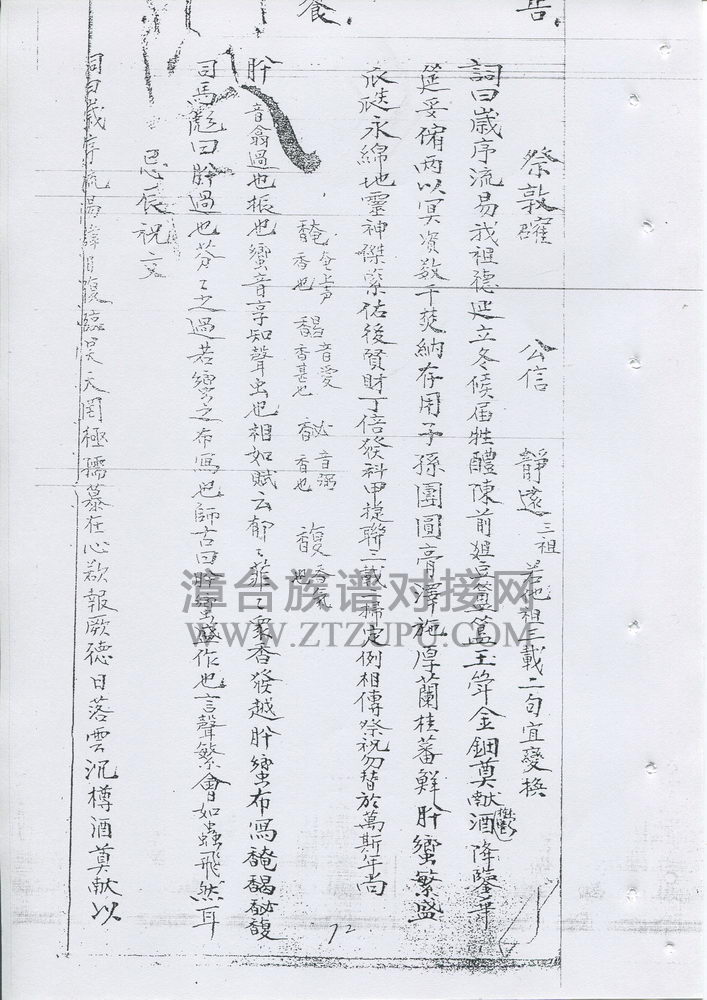 告
養
祭敦䂄 公信 靜遠 三祖 若他祖三載二句宜變換
詞曰歲序流易我祖德延立冬候届牲醴陳前俎豆簠簋玉斝金鈿奠献酒降鑒平
筵妥侑兩以冥資数千焚納存用子孫團圓膏澤施厚蘭桂蕃鮮肸蠁繁盛
瓜瓞永綿地靈神傑蒙佑後賢財丁倍發科甲捷聯三載一掃定例相傳祭祝勿替於萬斯年尚
馣 奄上声 香也 馤 音愛 香甚也 馝 音弼 香也 馥 香氣也
肸 音翕過也振也蠁音享知聲虫也相如賦云郁々菲々衆香發越肸蠁布寫馣馤馝馥
司馬彪曰肸過也芬々之過若蠁之布寫也師古曰肸蠁盛作也言聲繁會如蟲飛然耳
忌辰祝文
詞曰歲序流易諱日復臨昊天罔極孺慕在心欲報厥德日落雲沉樽酒奠献以
72
漳台族谱对接网
WWW.ZTZUPU.COM